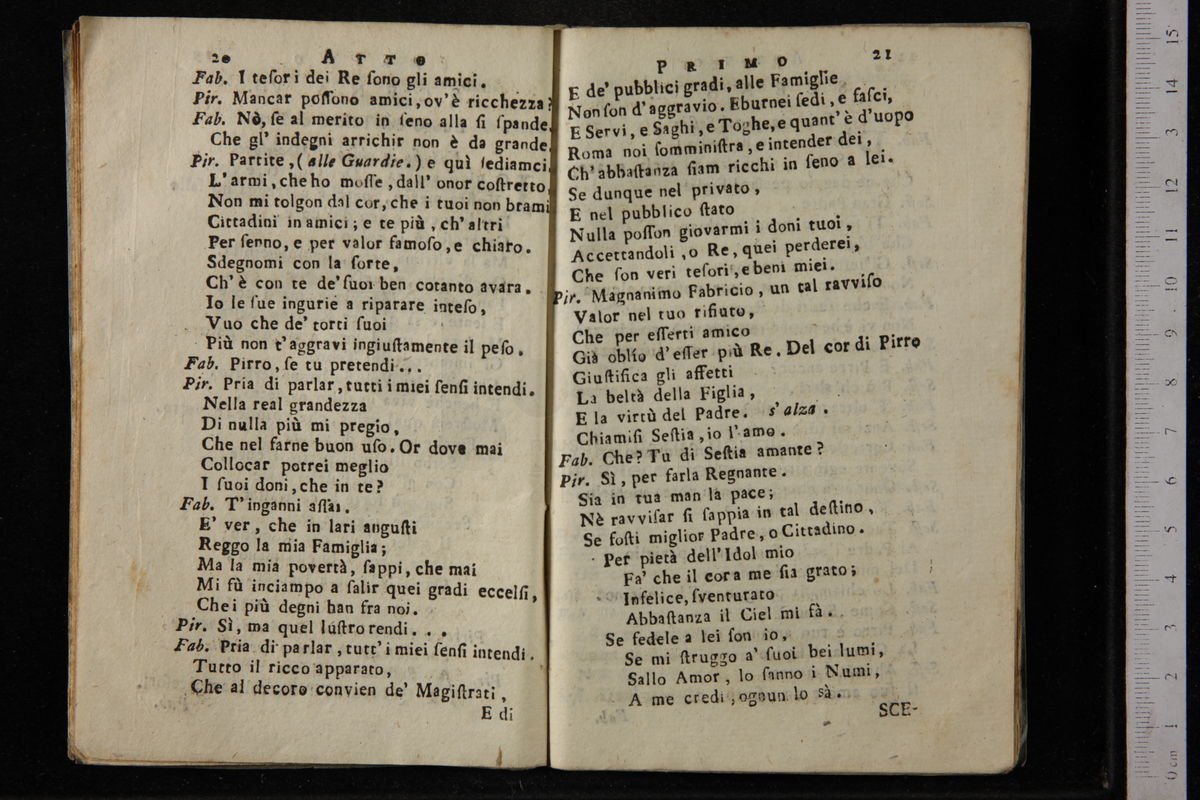 20 ATTO
Fab. I teſori dei Re ſono gli amici.
Pir. Mancar poſſono amici, ov'è ricchezza?
Fab. Nò, ſe al merito in ſeno alla ſi ſpande,
Che gl' indegni arrichir non è da grande.
Pir. Partite, (alle Guardie.) e quì ſediamci,
L'armi, che ho moſſe, dall' onor coſtretto,
Non mi tolgon dal cor, che i tuoi non brami
Cittadini in amici; e te più, ch' altri
Per ſenno, e per valor famoſo, e chiaro.
Sdegnomi con la ſorte,
Ch' è con te de' ſuoi ben cotanto avara.
Io le ſue ingurie a riparare inteſo,
Vuo che de' torti ſuoi
Più non t'aggravi ingiuſtamente il peſo.
Fab. Pirro, ſe tu pretendi...
Pir. Pria di parlar, tutti i miei ſenſi intendi.
Nella real grandezza
Di nulla più mi pregio,
Che nel farne buon uſo. Or dove mai
Collocar potrei meglio
I ſuoi doni, che in te?
Fab. T'inganni aſſai.
E' ver, che in lari anguſti
Reggo la mia Famiglia;
Ma la mia povertà, ſappi, che mai
Mi fù inciampo a ſalir quei gradi eccelſi,
Che i più degni han fra noi.
Pir. Sì, ma quel luſtro rendi...
Fab. Pria di parlar, tutt' i miei ſenſi intendi.
Tutto il ricco apparato,
Che al decoro convien de' Magiſtrati,
E di
PRIMO 21
E de' pubblici gradi, alle Famiglie
Non ſon d'aggravio. Eburnei ſedi, e faſci,
E Servi, e Saghi, e Toghe, e quant' è d'uopo
Roma noi ſomminiſtra, e intender dei,
Ch' abbaſtanza ſiam ricchi in ſeno a lei.
Se dunque nel privato,
E nel pubblico ſtato
Nulla poſſon giovarmi i doni tuoi,
Accettandoli, o Re, quei perderei,
Che ſon veri teſori, e beni miei.
Pir. Magnanimo Fabricio, un tal ravviſo
Valor nel tuo rifiuto,
Che per eſſerti amico
Già oblio d'eſſer più Re. Del cor di Pirro
Giuſtifica gli affetti
La beltà della Figlia,
E la virtù del Padre. s'alza.
Chiamiſi Seſtia, io l' amo.
Fab. Che? Tu di Seſtia amante?
Pir. Sì, per farla Regnante.
Sia in tua man la pace;
Nè ravviſar ſi ſappia in tal deſtino,
Se foſti miglior Padre, o Cittadino.
Per pietà dell' Idol mio
Fa' che il cor a me ſia grato;
Infelice, ſventurato
Abbaſtanza il Ciel mi fà.
Se fedele a lei ſon io,
Se mi ſtruggo a' ſuoi bei lumi,
Sallo Amor, lo ſanno i Numi,
A me credi, ognun lo sà.
SCE-